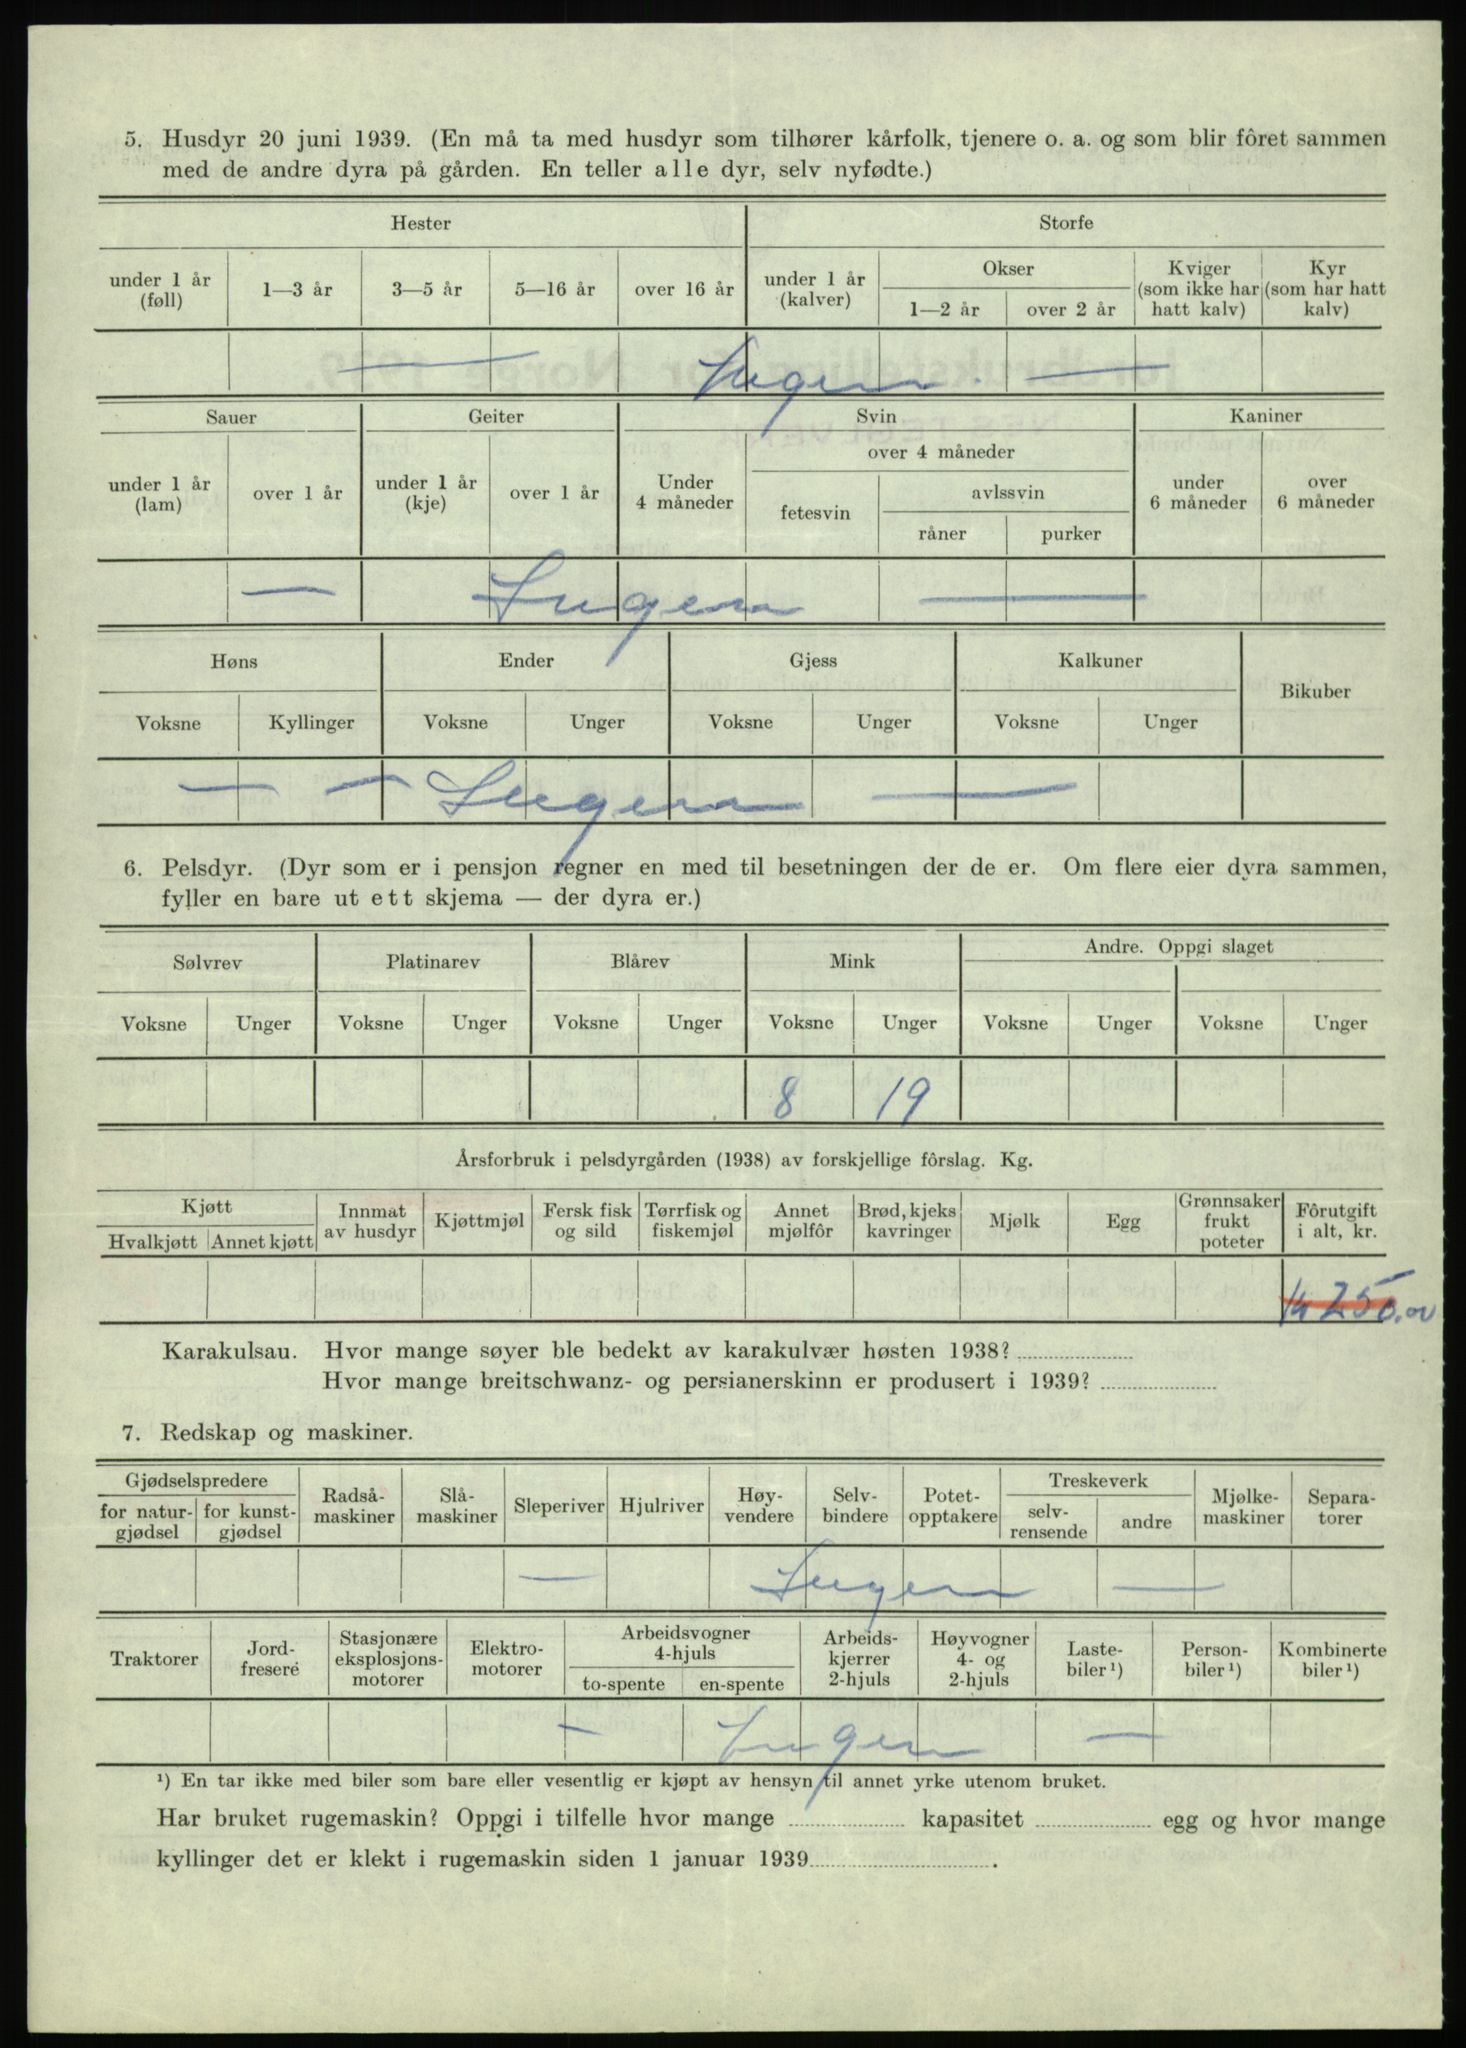 5. Husdyr 20 juni 1939. (En må ta med husdyr som tilhører kårfolk, tjenere o. a. og som blir fôret sammen
med de andre dyra på gården. En teller alle dyr, selv nyfødte.)
Hester Storfe
under 1 år (føll) 1—3 år 3—5 år 5—16 år over 16 år under 1 år (kalver) Okser 1—2 år over 2 år Kviger (som ikke har hatt kalv) Kyr (som har hatt kalv)
— Ingen —
Sauer Geiter Svin Kaniner
under 1 år (lam) over 1 år under 1 år (kje) over 1 år Under 4 måneder over 4 måneder fetesvin avlssvin råner purker under 6 måneder over 6 måneder
— Ingen —
Høns Ender Gjess Kalkuner Bikuber
Voksne Kyllinger Voksne Unger Voksne Unger Voksne Unger
— — Ingen —
6. Pelsdyr. (Dyr som er i pensjon regner en med til besetningen der de er. Om flere eier dyra sammen,
fyller en bare ut ett skjema — der dyra er.)
Sølvrev Platinarev Blårev Mink Andre. Oppgi slaget
Voksne Unger Voksne Unger Voksne Unger Voksne Unger Voksne Unger Voksne Unger
8 19
Årsforbruk i pelsdyrgården (1938) av forskjellige fôrslag. Kg.
Kjøtt Hvalkjøtt Annet kjøtt Innmat av husdyr Kjøttmjøl Fersk fisk og sild Tørrfisk og fiskemjøl Annet mjølfôr Brød, kjeks kavringer Mjølk Egg Grønnsaker frukt poteter Fôrutgift i alt, kr.
250.00
Karakulsau. Hvor mange søyer ble bedekt av karakulvær høsten 1938?
Hvor mange breitschwanz- og persianerskinn er produsert i 1939?
7. Redskap og maskiner.
Gjødselspredere for naturgjødsel for kunstgjødsel Radsåmaskiner Slåmaskiner Sleperiver Hjulriver Høyvendere Selvbindere Potetopptakere Treskeverk selvrensende andre Mjølkemaskiner Separatorer
— Ingen —
Traktorer Jordfresere Stasjonære eksplosjonsmotorer Elektromotorer Arbeidsvogner 4-hjuls to-spente en-spente Arbeidskjerrer 2-hjuls Høyvogner 4- og 2-hjuls Lastebiler¹) Personbiler¹) Kombinerte biler¹)
— Ingen —
¹) En tar ikke med biler som bare eller vesentlig er kjøpt av hensyn til annet yrke utenom bruket.
Har bruket rugemaskin? Oppgi i tilfelle hvor mange kapasitet egg og hvor mange
kyllinger det er klekt i rugemaskin siden 1 januar 1939 .